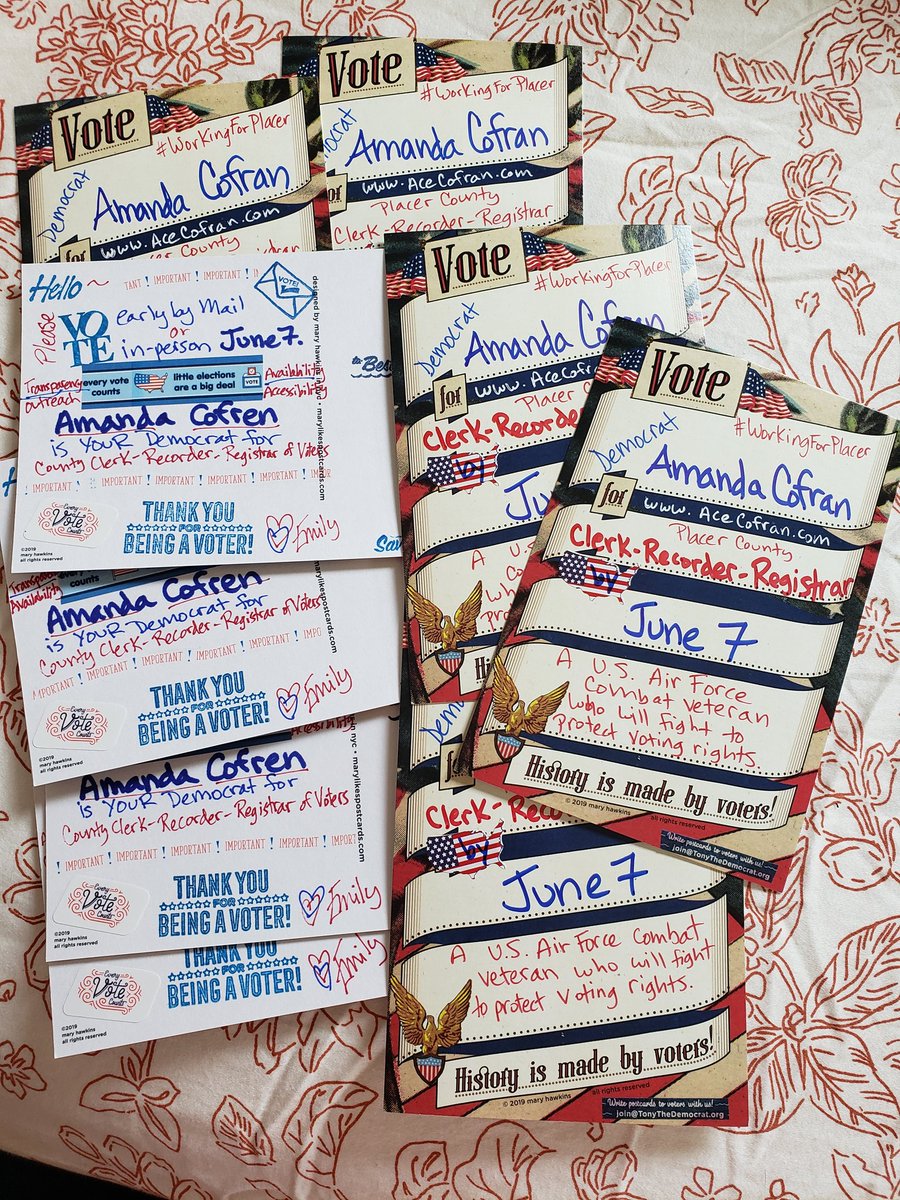 Vote
#WorkingForPlacer
Democrat
Amanda Cofran
for
www.AceCofran.com
County
Vote
#WorkingForPlacer
Amanda Cofran
www.AceCofran.com
Placer County
Clerk-Recorder-Registrar
Hello ~
IMPORTANT ! IMPORTANT ! IMPORTANT !
VOTE!
Please
VOTE
early by Mail
or
in-person June 7.
Transparency
Outreach
every vote
counts
little elections
are a big deal
VOTE
Availability
Accessibility
Amanda Cofren
is YOUR Democrat for
County Clerk-Recorder-Registrar of Voters
IMPORTANT ! IMPORTANT ! IMPORTANT ! IMPORTANT !
Every
Vote
Counts
THANK YOU
FOR
BEING A VOTER!
Emily
©2019
mary hawkins
all rights reserved
designed by mary hawkins in nyc • marylikespostcards.com
counts
Transparency
Availability
Amanda Cofren
is YOUR Democrat for
County Clerk-Recorder-Registrar of Voters
IMPORTANT ! IMPORTANT ! IMPORTANT ! IMPORTANT !
Every
Vote
Counts
THANK YOU
FOR
BEING A VOTER!
Emily
©2019
mary hawkins
all rights reserved
marylikespostcards.com
Amanda Cofren
is YOUR Democrat for
County Clerk-Recorder-Registrar of Voters
IMPORTANT ! IMPORTANT ! IMPORTANT ! IMPORTANT !
Every
Vote
Counts
THANK YOU
FOR
BEING A VOTER!
Emily
©2019
mary hawkins
all rights reserved
nyc • marylikespostcards.com
Every
Vote
Counts
THANK YOU
FOR
BEING A VOTER!
Emily
©2019
mary hawkins
all rights reserved
Vote
#WorkingForPlacer
Democrat
Amanda Cofran
for
www.AceCofran.com
Placer County
Clerk-Recorder
by
A U.S.
History is
Vote
#WorkingForPlacer
Democrat
Amanda Cofran
for
www.AceCofran.com
Placer County
Clerk-Recorder-Registrar
by
June 7
A U.S. Air Force
Combat veteran
who will fight to
protect voting rights.
History is made by voters!
© 2019 mary hawkins
all rights reserved
Write postcards to voters with us!
join@TonyTheDemocrat.org
by
June 7
A U.S. Air Force Combat
veteran who will fight
to protect voting rights.
History is made by voters!
© 2019 mary hawkins
all rights reserved
Write postcards to voters with us!
join@TonyTheDemocrat.org